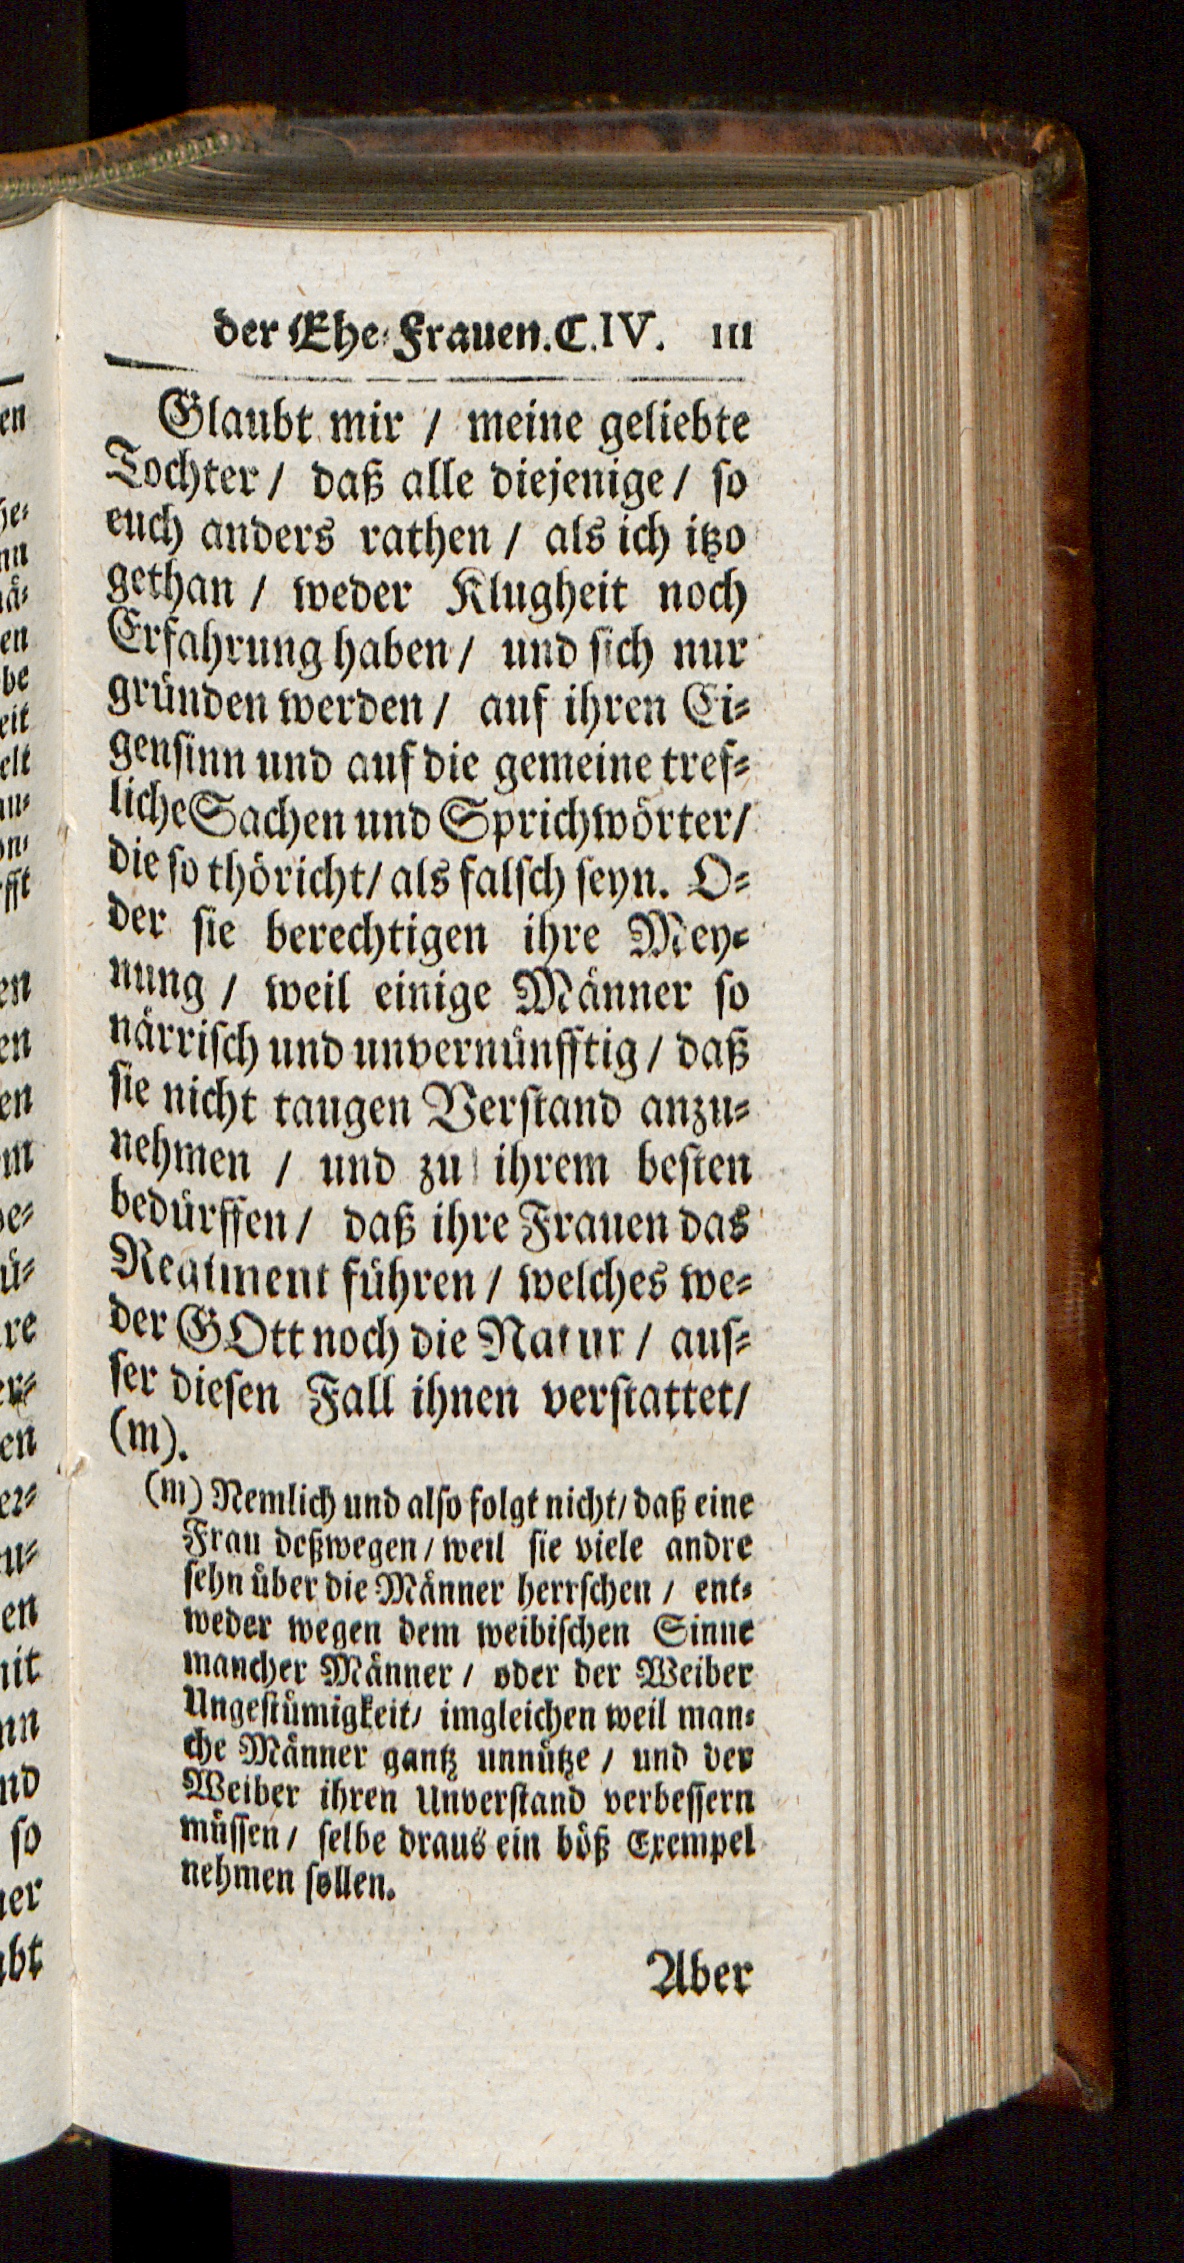 der Ehe-Frauen. C. IV. 111
Glaubt mir / meine geliebte
Tochter / daß alle diejenige / so
euch anders rathen / als ich itzo
gethan / weder Klugheit noch
Erfahrung haben / und sich nur
gründen werden / auf ihren Ei-
gensinn und auf die gemeine tref-
liche Sachen und Sprichwörter /
die so thöricht / als falsch seyn. O-
der sie berechtigen ihre Mey-
nung / weil einige Männer so
närrisch und unvernünfftig / daß
sie nicht taugen Verstand anzu-
nehmen / und zu ihrem besten
bedürffen / daß ihre Frauen das
Regiment führen / welches we-
der GOtt noch die Natur / aus-
ser diesen Fall ihnen verstattet /
(m).
(m) Nemlich und also folgt nicht / daß eine
Frau deßwegen / weil sie viele andre
sehn über die Männer herrschen / ent-
weder wegen dem weibischen Sinne
mancher Männer / oder der Weiber
Ungestümigkeit / imgleichen weil man-
che Männer gantz unnütze / und der
Weiber ihren Unverstand verbessern
müssen / selbe draus ein böß Exempel
nehmen sollen.
Aber